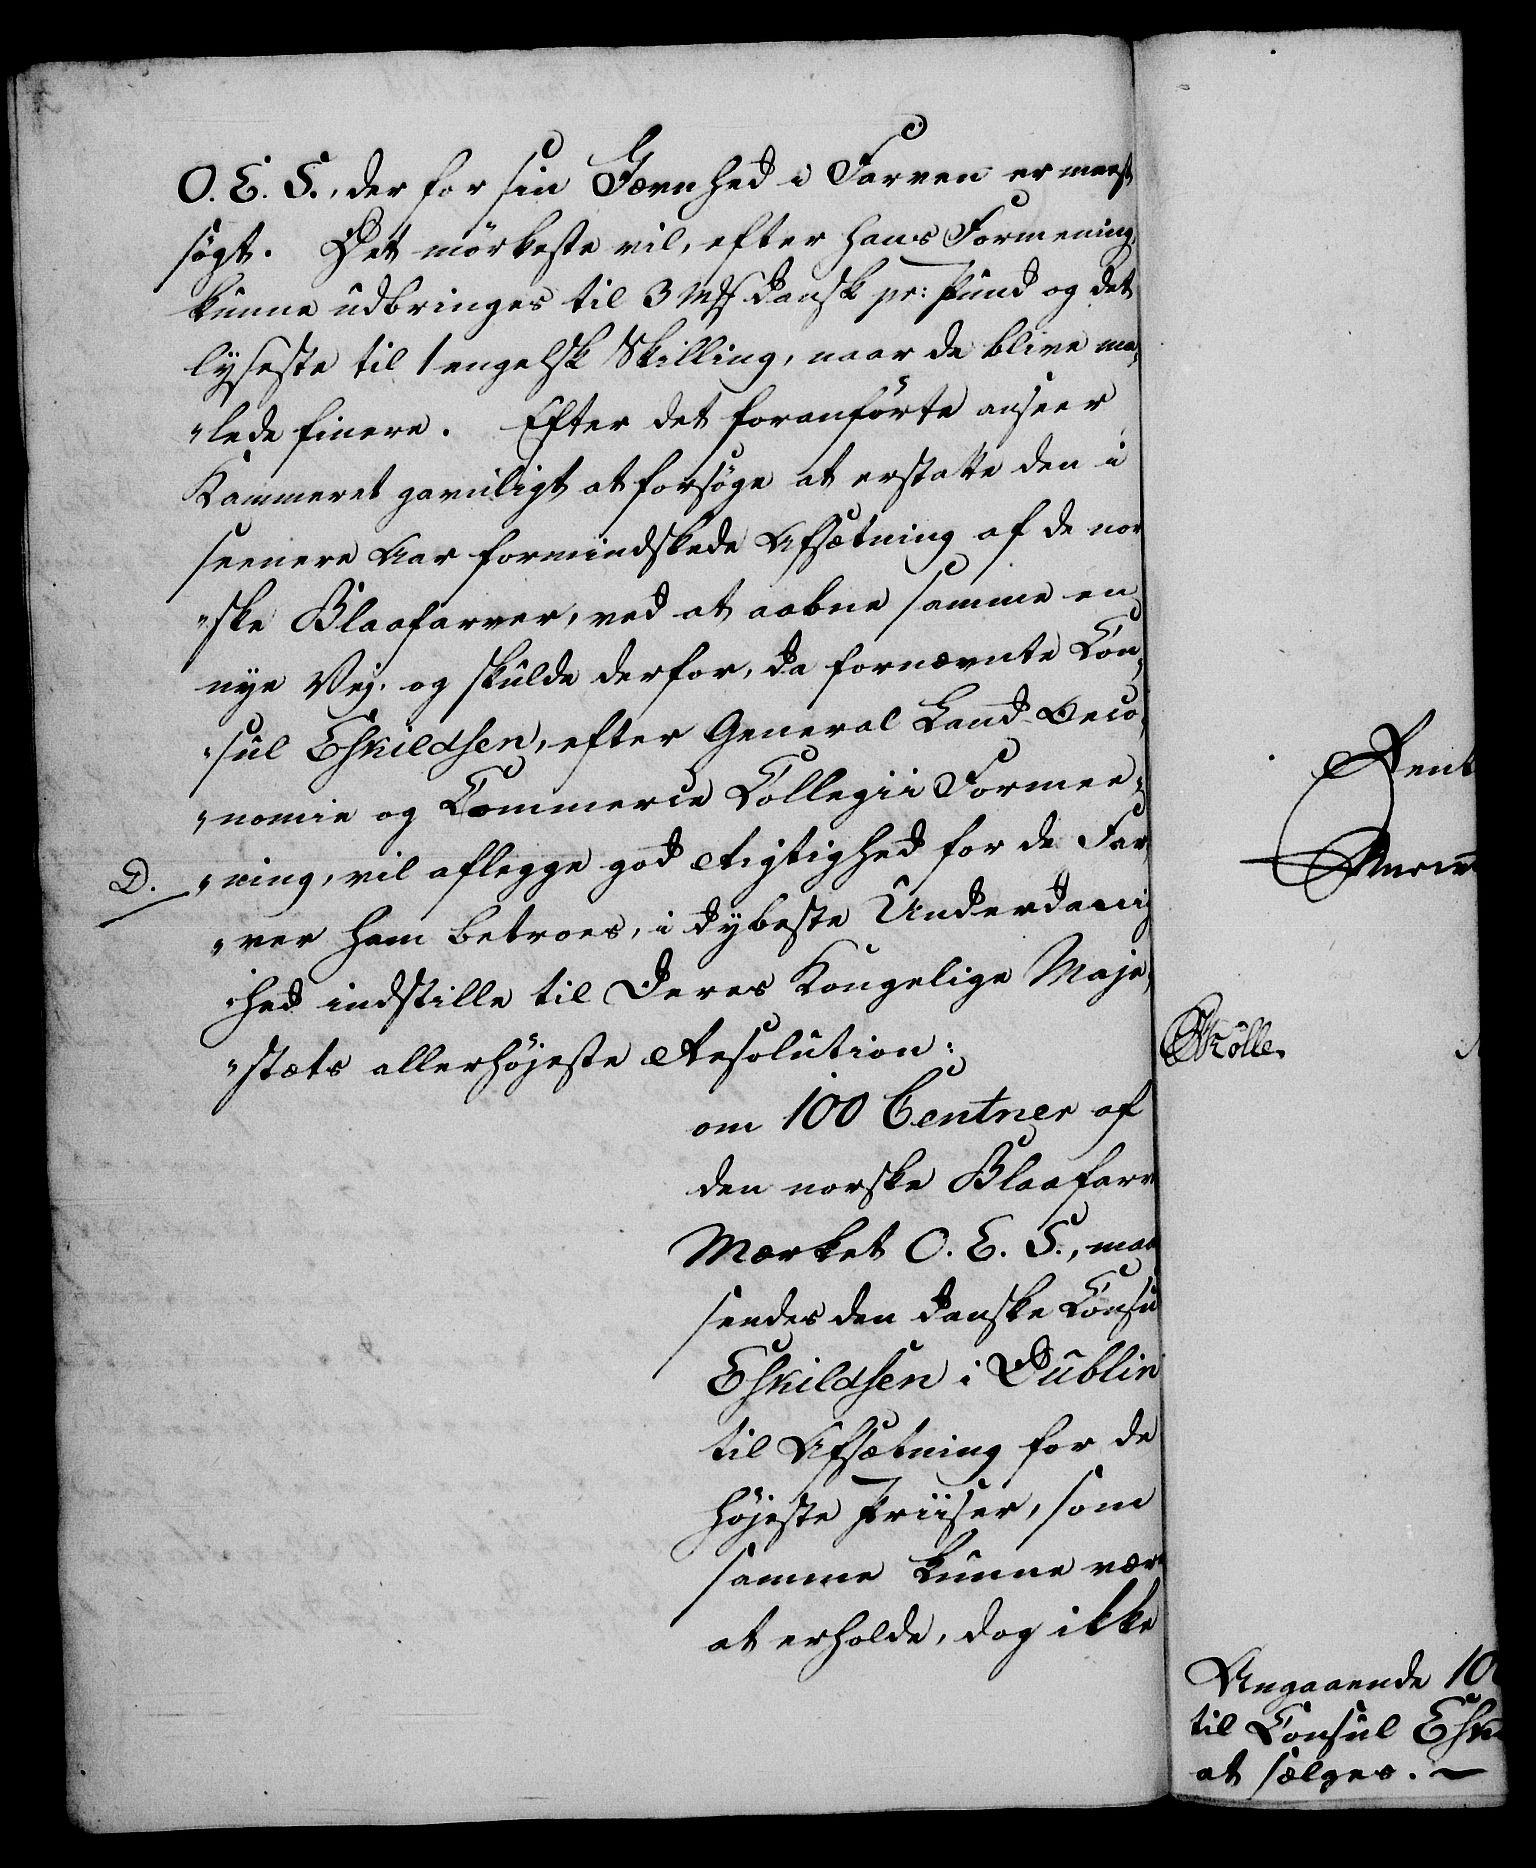 O. E. S., der for sin Jævnhed i Farven er meest
søgt. Det mörkeste vil, efter hans Formening,
kunne udbringes til 3 Mk dansk pr: Pund og det
lyseste til 1 engelsk Skilling, naar de blive ma,
"lede finere. Efter det foranförte anseer
Kammeret gavnligt at forsöge at erstatte den i
seenere Aar formindskede Afsætning af de nor
"ske Blaafarver, ved at aabne samme en
nye Vej, og skulde derfor, da fornævnte Con,
"sul Eskildsen, efter General Land-Oeco,
"nomie og Commerce Collegii Formee,
D. "ning, vil aflegge god Rigtighed for de Far
"ver ham betroes, i dybeste Underdanig
"hed indstille til Deres Kongelige Maje,
"stæts allerhöjeste Resolution:
om 100 Centner af
den norske Blaafarv
Mærket O. E. S., maa
sendes den danske Consu
Eskildsen i Dublin
til Afsætning for de
höjeste Priiser, som
samme kunne vær
at erholde, dog ikke
Rent
Angaaende 10
til Consul Esk
at sælges.